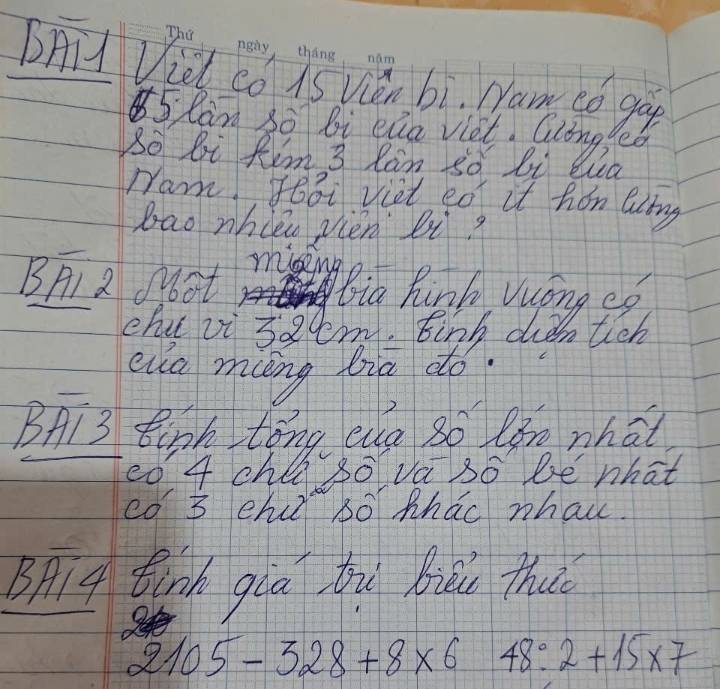 Thứ ngày tháng năm
BÀI 1 Việt có 15 viên bi. Nam có gấp
5 lần số bi của việt. Cường có
số bi kém 3 lần số bi của
Nam. Hỏi việt có ít hơn Cường
bao nhiêu viên bi?
miếng
BÀI 2 Một bìa hình vuông có
chu vi 32 cm. Tính diện tích
của miếng bìa đó.
BÀI 3 Tính tổng của số lớn nhất
có 4 chữ số và số bé nhất
có 3 chữ số khác nhau.
BÀI 4 Tính giá trị biểu thức
2105 - 328 + 8 x 6 48 : 2 + 15 x 7